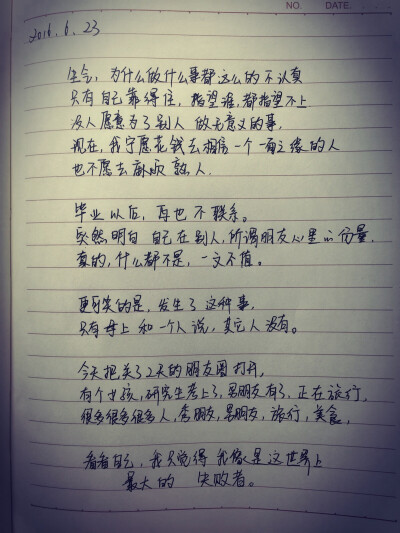 NO.
DATE.
2016.6.23
生今，为什么做什么事都这么的不认真
只有自己靠得住，指望谁，都指望不上
没人愿意为了别人 做无意义的事，
现在，我宁愿花钱去相信一个一面之缘的人
也不愿去麻烦熟人.
毕业以后，再也不联系。
突然明白 自己在别人，所谓朋友心里的份量，
真的，什么都不是，一文不值。
更可笑的是，发生了这种事，
只有母上和一个人说，其它人没有。
今天把关了2天的朋友圈打开，
有个女孩，研究生考上了，男朋友有了，正在旅行，
很多很多很多人，秀朋友，男朋友，旅行，美食，
看看自己，我只觉得 我像是这世界上
最大的 失败者。